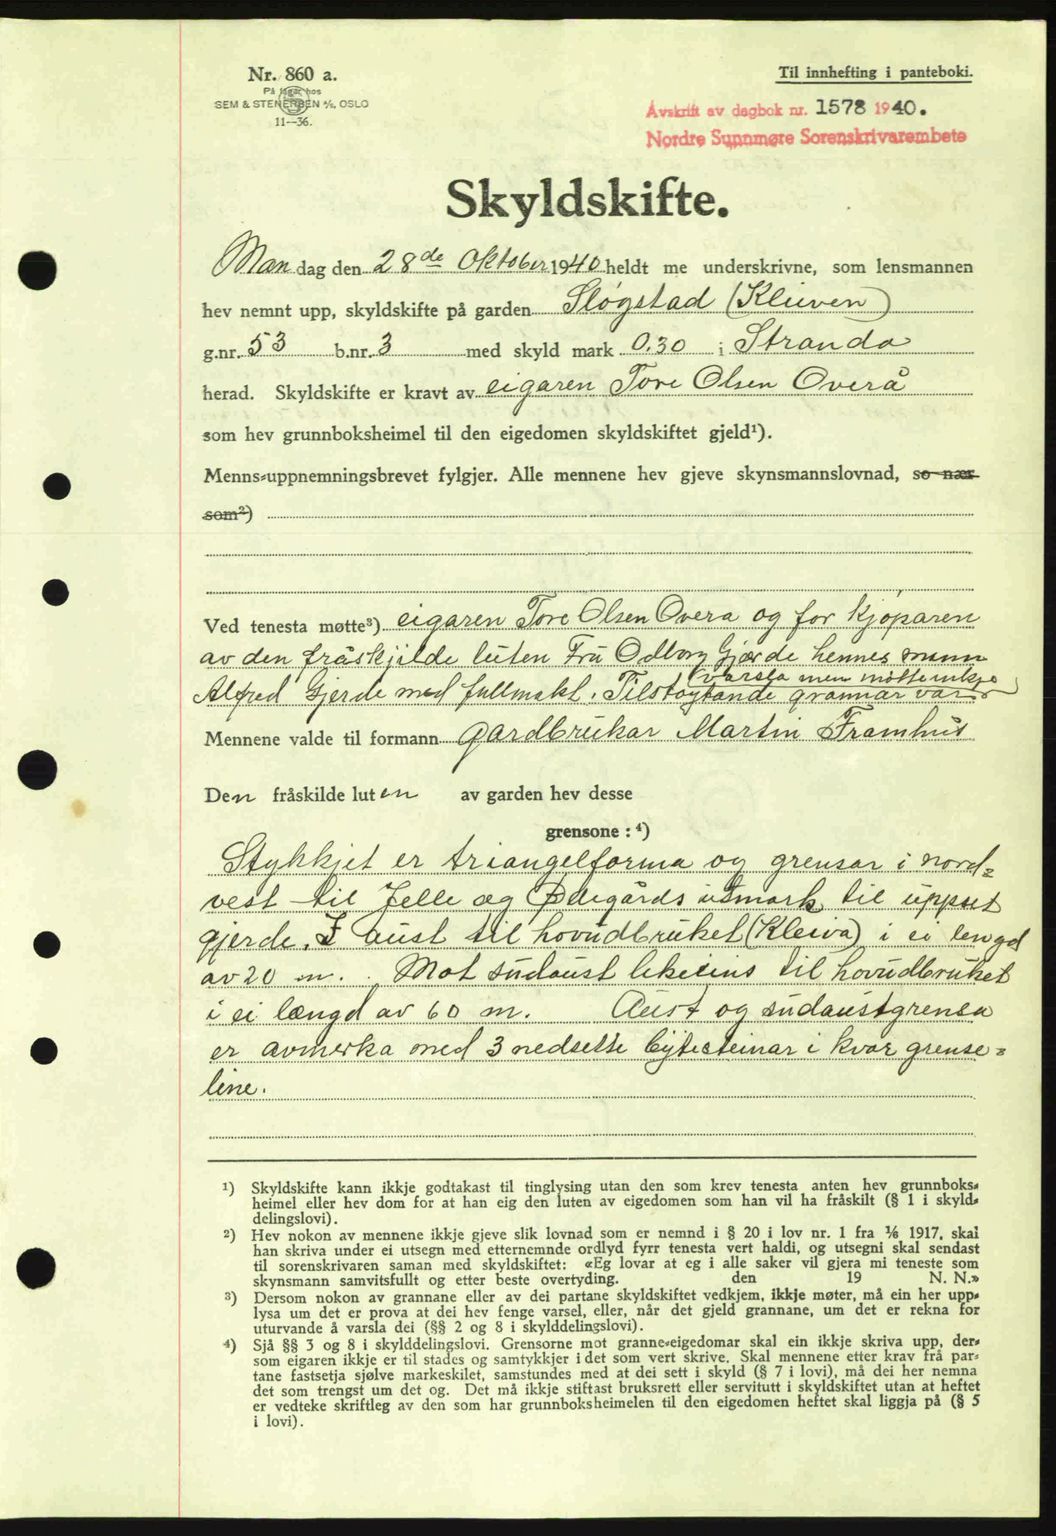 Nr. 860 a.
På lager hos
SEM & STENERSEN A/S, OSLO
11—36.
Til innhefting i panteboki.
Avskrift av dagbok nr. 1578 1940.
Nordre Sunnmøre Sorenskrivarembete
Skyldskifte.
Mandag den 28de Oktober 1940 heldt me underskrivne, som lensmannen
hev nemnt upp, skyldskifte på garden Sløgstad (Kleiven)
g.nr. 53 b.nr. 3 med skyld mark 0.30 i Stranda
herad. Skyldskifte er kravt av eigaren Tore Olsen Overå
som hev grunnboksheimel til den eigedomen skyldskiftet gjeld¹).
Menns-uppnemningsbrevet fylgjer. Alle mennene hev gjeve skynsmannslovnad, so nær
som²)
Ved tenesta møtte³) eigaren Tore Olsen Overa og for kjøparen
av den fråskjilde luten Fru Odborg Gjærde hennes mann
(varsla men møtte inkje
Alfred Gjerde med fullmakt. Tilstøytande grannar var
Mennene valde til formann gardbrukar Martin Framhus
Den fråskilde luten av garden hev desse
grensone : ⁴)
Stykkjet er triangelforma og grensar i nord-
vest til Jelle og Ødegårds utmark til uppset
gjerde. I aust til hovudbruket (Kleiva) i ei lengd
av 20 m. Mot sudaust likeeins til hovudbruket
i ei længd av 60 m. Aust og sudaustgrensa
er avmerka med 3 nedsette bytesteinar i kvar grense-
line.
¹) Skyldskifte kann ikkje godtakast til tinglysing utan den som krev tenesta anten hev grunnboks-
heimel eller hev dom for at han eig den luten av eigedomen som han vil ha fråskilt (§ 1 i skyld-
delingslovi).
²) Hev nokon av mennene ikkje gjeve slik lovnad som er nemnd i § 20 i lov nr. 1 fra ⅙ 1917, skal
han skriva under ei utsegn med etternemnde ordlyd fyrr tenesta vert haldi, og utsegni skal sendast
til sorenskrivaren saman med skyldskiftet: «Eg lovar at eg i alle saker vil gjera mi teneste som
skynsmann samvitsfullt og etter beste overtyding. den 19 N. N.»
³) Dersom nokon av grannane eller av dei partane skyldskiftet vedkjem, ikkje møter, må ein her upp-
lysa um det er prova at dei hev fenge varsel, eller, når det gjeld grannane, um det er rekna for
uturvande å varsla dei (§§ 2 og 8 i skylddelingslovi).
⁴) Sjå §§ 3 og 8 i skylddelingslovi. Grensorne mot granne-eigedomar skal ein ikkje skriva upp, der-
som eigaren ikkje er til stades og samtykkjer i det som vert skrive. Skal mennene etter krav frå par-
tane fastsetja sjølve markeskilet, samstundes med at dei sett i skyld (§ 7 i lovi), må dei her nemna
det som trengst um det og. Det må ikkje stiftast bruksrett eller servitutt i skyldskiftet utan at heftet
er vedteke skriftleg av den som har grunnboksheimelen til den eigedomen heftet skal liggja på (§ 5
i lovi).